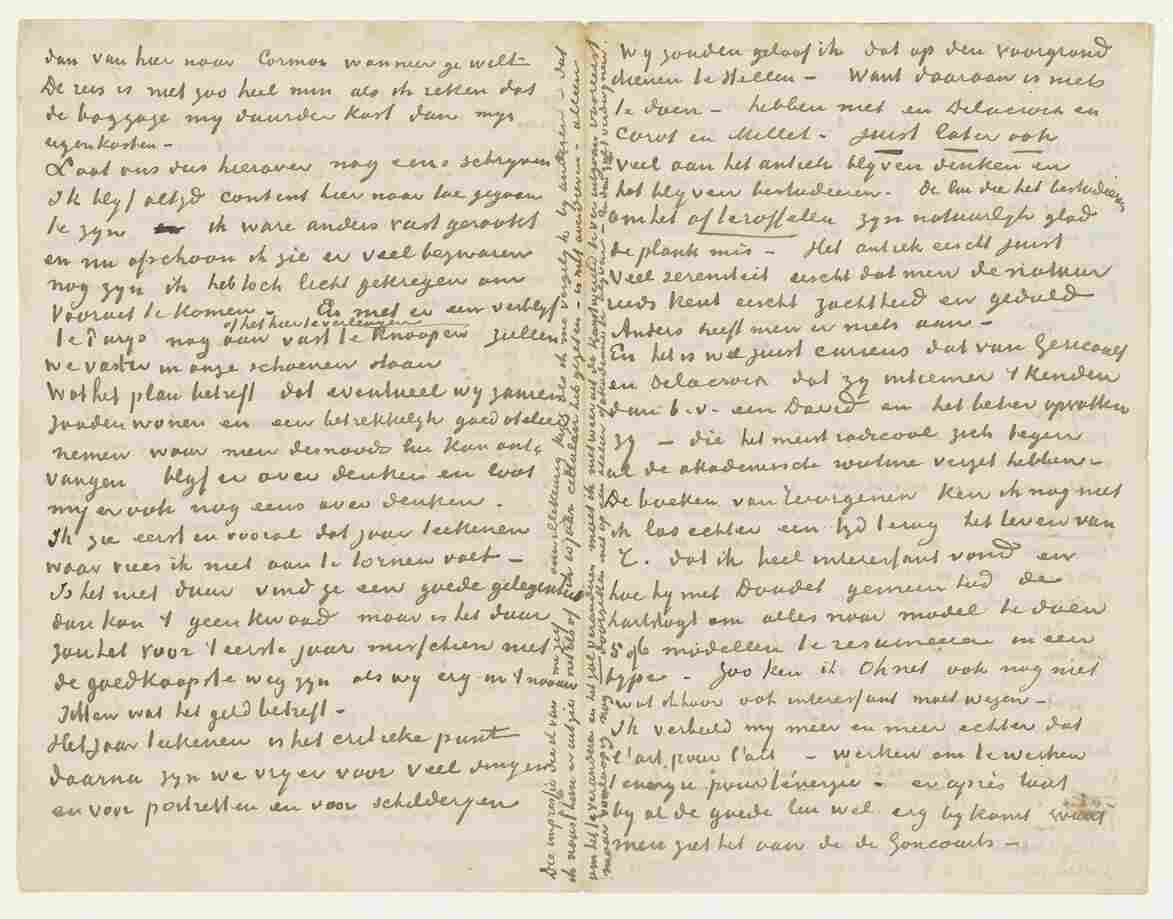 dan van hier naar Cormon wanneer ge wilt
De reis is niet zoo heel min als ik reken dat
de baggage my duurder kost dan myn
eigen kosten -
Laat ons dus hierover nog eens schryven
Ik blyf altyd content hier naar toe gegaan
te zyn ik ware anders vast geraakt
en nu ofschoon ik zie er veel bezwaren
nog zyn ik heb toch licht gekregen om
vooruit te komen - En met er een verblyf
of het hier te verlengen
te Parys nog aan vast te knoopen zullen
we vaster in onze schoenen staan
Wat het plan betreft dat eventueel wy zamen
zouden wonen en een betrekkelyk goed atelier
nemen waar men desnoods lui kan ont-
vangen blyf er over denken en laat
my er ook nog eens over denken.
Ik zie eerst en vooral dat jaar teekenen
waar vrees ik niet aan te tornen valt -
Is het niet duur vind ge een goede gelegenheid
dan kan 't geen kwaad maar is het duur
zou het voor 't eerste jaar misschien niet
de goedkoopste weg zyn als wy erg in 't naauw
zitten wat het geld betreft -
Het jaar teekenen is het critieke punt
daarna zyn we vryer voor veel dingen
en voor portretten en voor schilderyen
Die impressie die el van my
aantrekking kygt als ik me vergelyk by anderen - dat
ik
of 10 jaar cellulair heb gezeten - is niet overdreven - alleen
om het te veranderen en het zal veranderen moet ik niet weer uit de kunst
Wy zouden geloof ik dat op den voorgrond
dienen te stellen - Want daaraan is niets
te doen - hebben niet en Delacroix en
Corot en Millet - juist later ook
veel aan het antiek blyven denken en
het blyven bestudeeren. De lui die het bestudeeren
om het af te roffelen zyn natuurlyk glad
de plank mis - Het antiek eischt juist
veel sereniteit eischt dat men de natuur
reeds kent eischt zachtheid en geduld
Anders heeft men er niets aan -
En het is wel juist curieus dat van Goncourt
en Delacroix dat zy intiemer 't kenden
dan b.v. een David en het beter opvatten
zy - die het meest radicaal zich tegen
al de akademische routine verzet hebben -
De boeken van Tourgenief ken ik nog niet
ik las echter een tyd terug het leven van
T. dat ik heel interessant vond en
hoe hy met Daudet gemeen had de
hartstogt om alles naar model te doen
5 of 6 modellen te resumeeren in een
type - Zoo ken ik Ohnet ook nog niet
wat ik hoor ook interessant moet wezen -
Ik verbeeld my meer en meer echter dat
l'art pour l'art - werken om te werken
- énergie pour l'énergie - en après tout
by al de goede lui wel erg by komt want
men ziet het aan de de Goncourts -